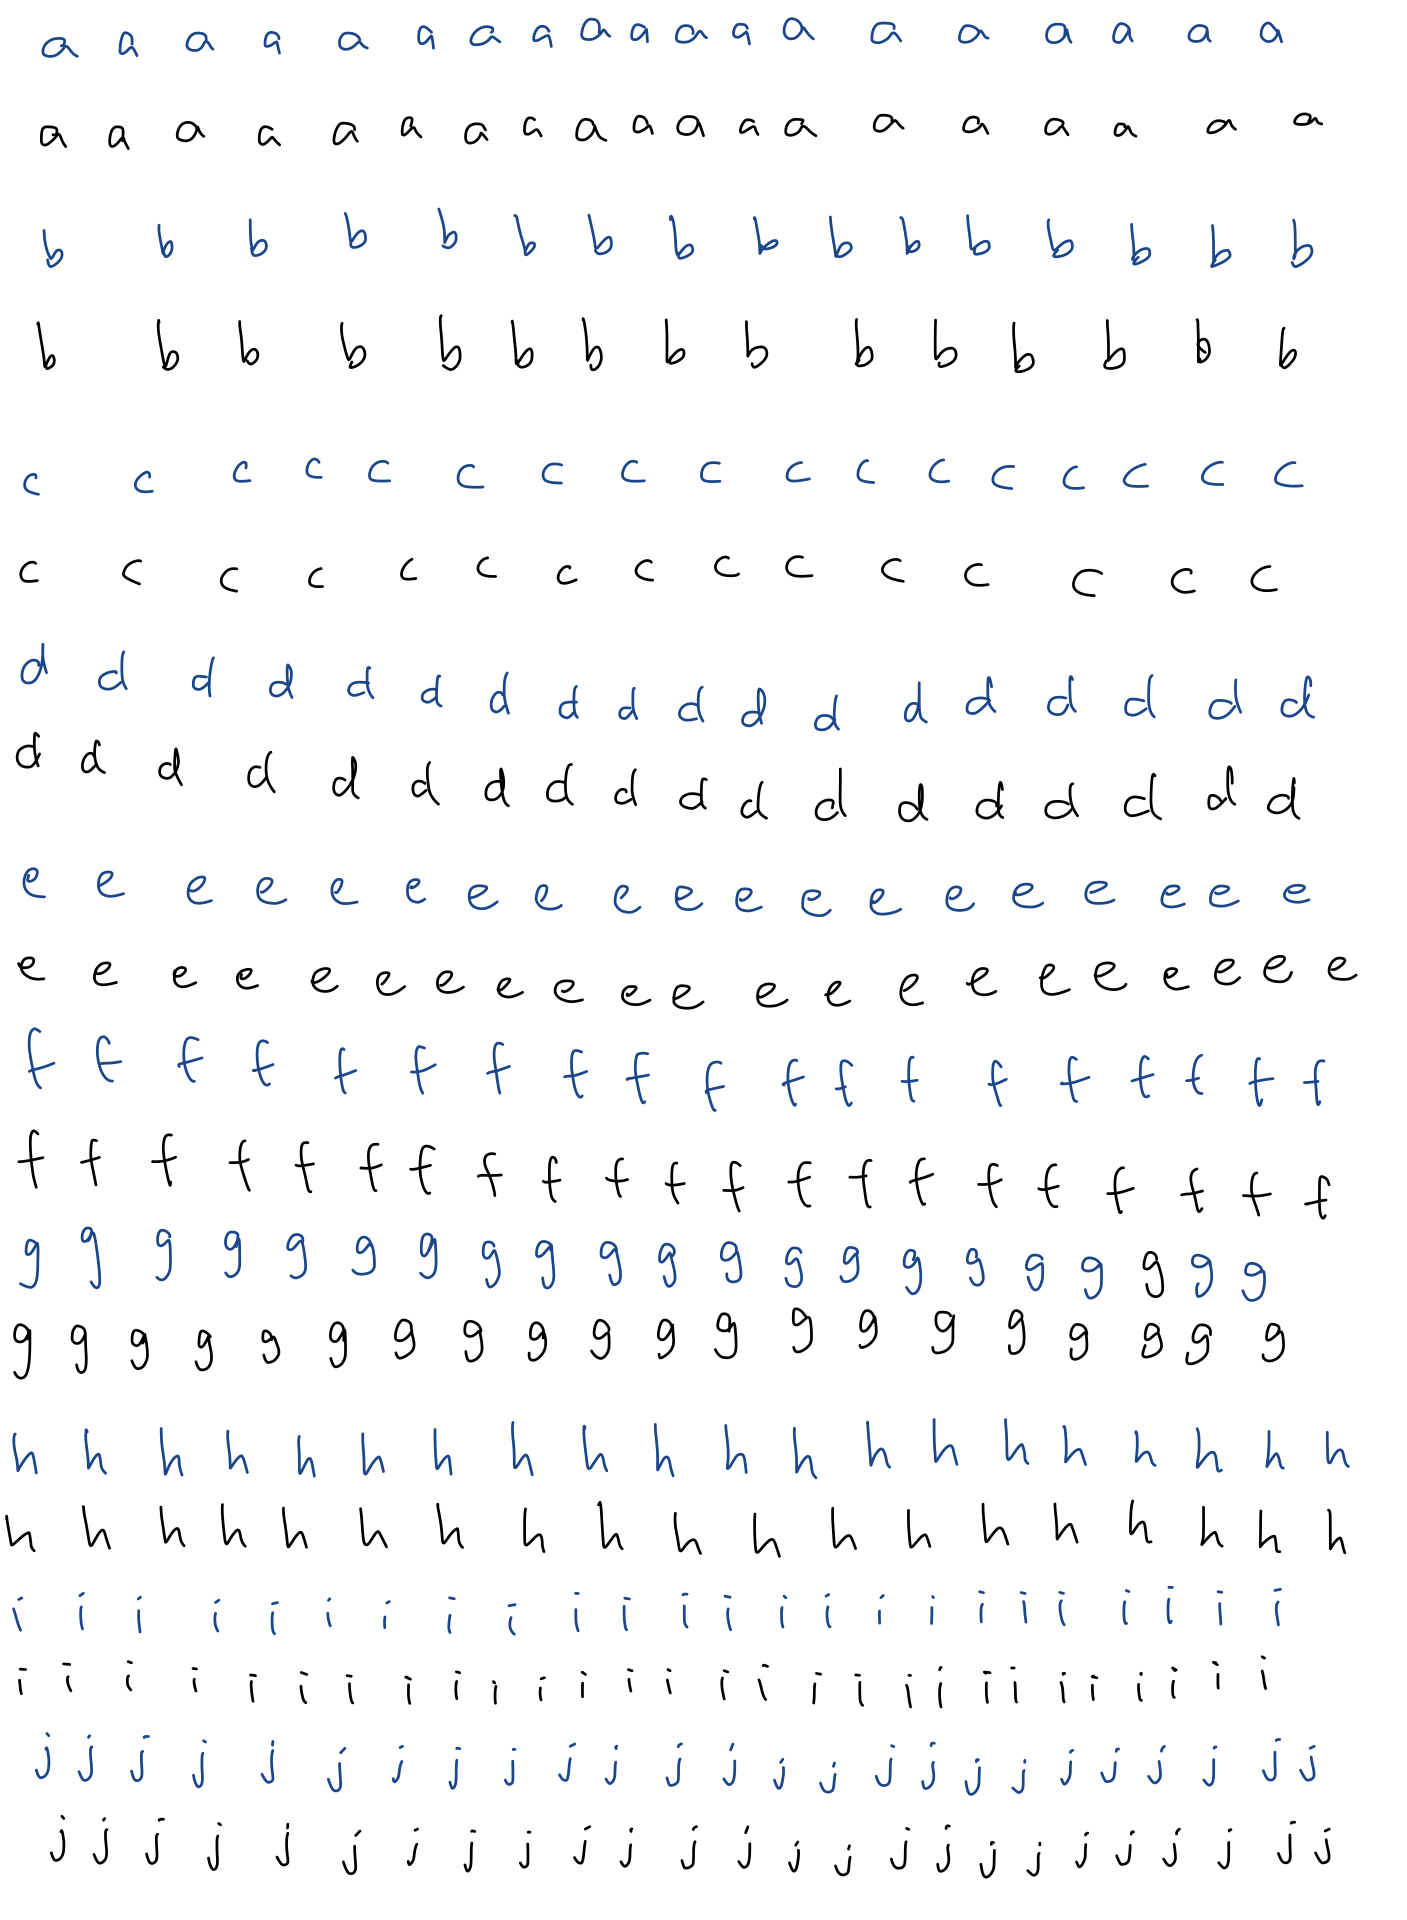 a a a a a a a a a a a a a a a a a a a
a a a a a a a a a a a a a a a a a a a
b b b b b b b b b b b b b b b b
b b b b b b b b b b b b b b b
c c c c c c c c c c c c c c c c c
c c c c c c c c c c c c c c c
d d d d d d d d d d d d d d d d d d
d d d d d d d d d d d d d d d d d d
e e e e e e e e e e e e e e e e e e e
e e e e e e e e e e e e e e e e e e e e e
f f f f f f f f f f f f f f f f f f f
f f f f f f f f f f f f f f f f f f f f f
g g g g g g g g g g g g g g g g g g g g g
g g g g g g g g g g g g g g g g g g g g
h h h h h h h h h h h h h h h h h h h h
h h h h h h h h h h h h h h h h h h h
i i i i i i i i i i i i i i i i i i i i i i i i
i i i i i i i i i i i i i i i i i i i i i i i i i i i i
j j j j j j j j j j j j j j j j j j j j j j j j j
j j j j j j j j j j j j j j j j j j j j j j j j j